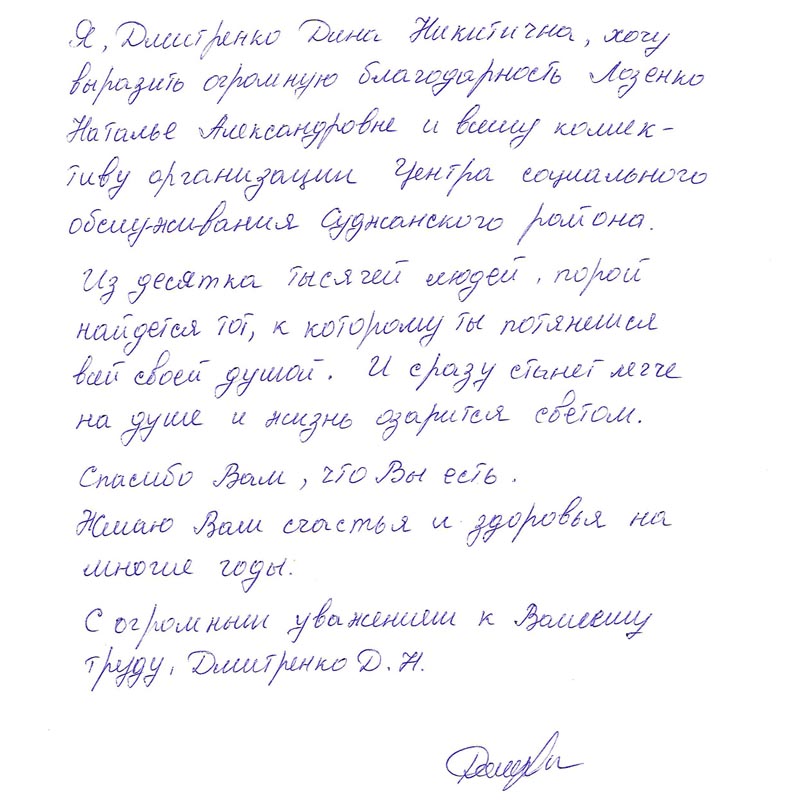 Я, Дмитренко Дина Никитична, хочу
выразить огромную благодарность Лозенко
Наталье Александровне и всему коллек-
тиву организации Центра социального
обслуживания Суджанского района.
Из десятка тысячей людей, порой
найдется тот, к которому ты потянешся
всей своей душой. И сразу станет легче
на душе и жизнь озарится светом.
Спасибо Вам, что Вы есть.
Желаю Вам счастья и здоровья на
многие годы.
С огромным уважением к Вашему
труду, Дмитренко Д. Н.